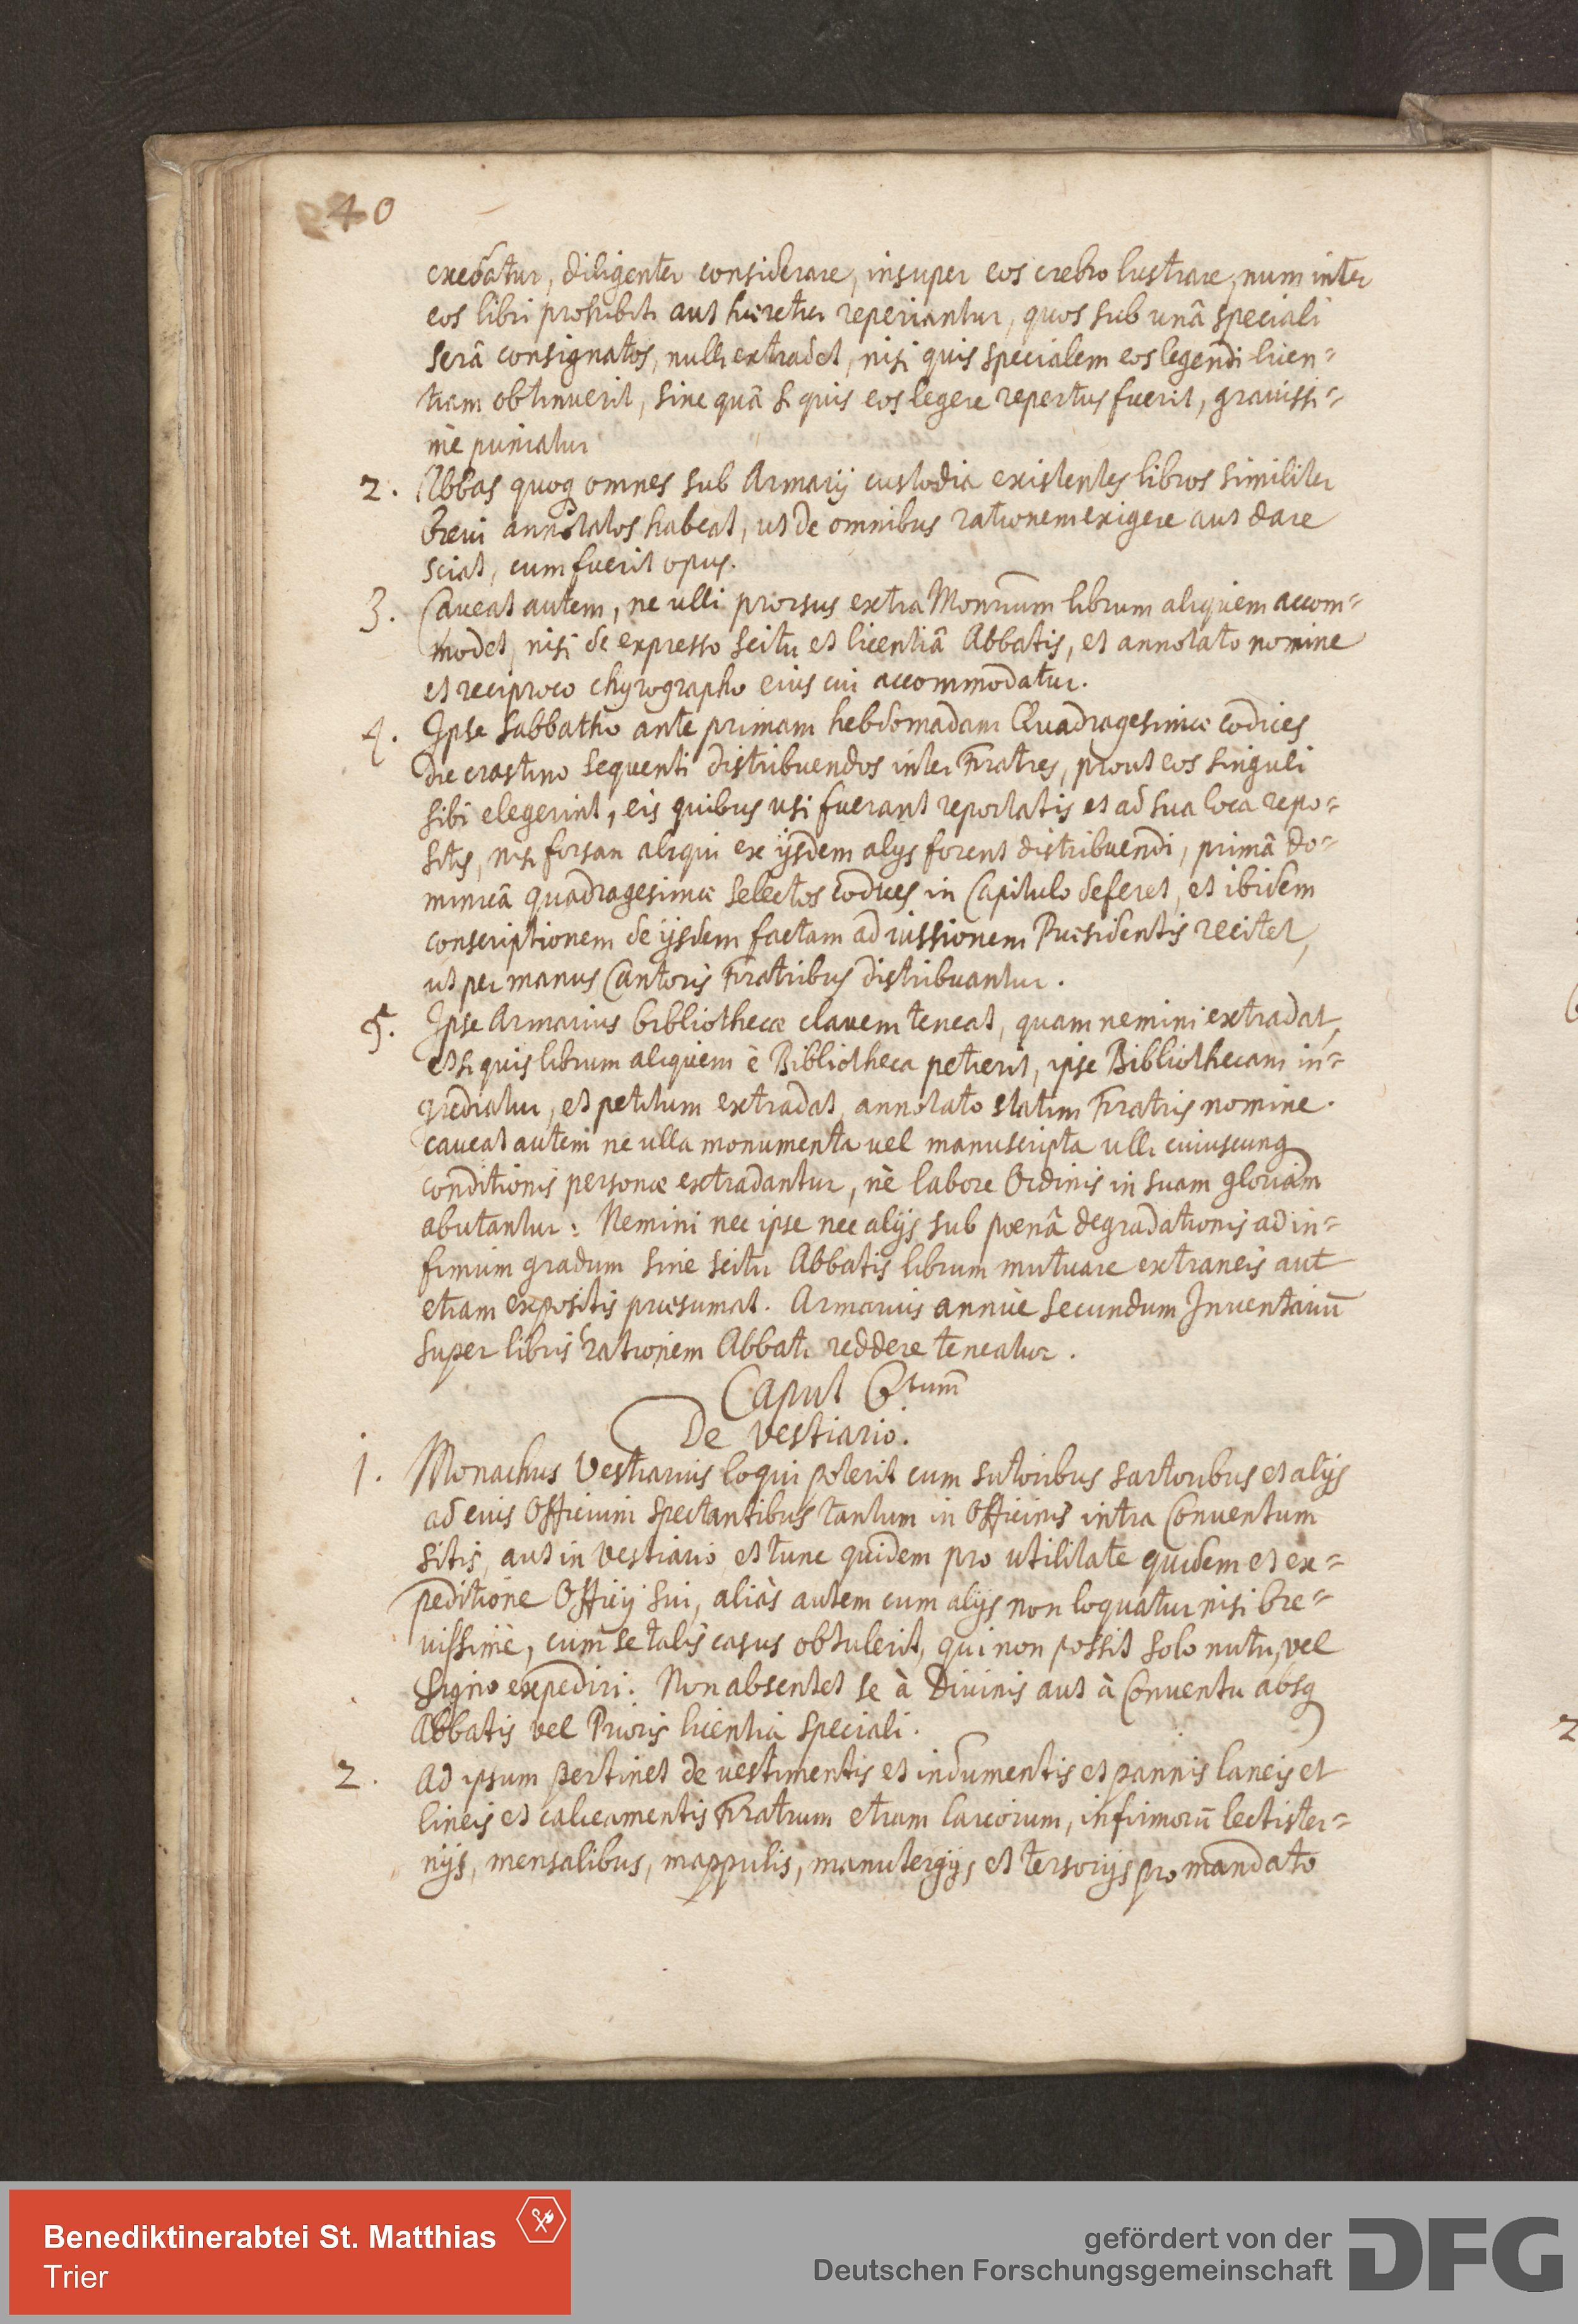 40
exedatur, diligenter considerare, insuper eos crebro lustrare, num inter
eos libri prohibiti aut hæretici reperiantur, quos sub unâ speciali
serâ consignatos, nulli extradet, nisi quis specialem eos legendi licen=
tiam obtinuerit, sine quâ si quis eos legere repertus fuerit, gravissi=
me puniatur
2. Abbas quoq omnes sub Armarij custodia existentes libros similiter
brevi annotatos habeat, ut de omnibus rationem exigere aut dare
sciat, cum fuerit opus.
3. Caveat autem, ne ulli prorsus extra Monrium librum aliquem accom=
modet, nisi de expresso scitu et licentiâ Abbatis, et annotato nomine
et reciproco chyrographo eius cui accommodatur.
4. Ipse sabbatho ante primam hebdomadam Quadragesimæ codices
die crastino sequenti distribuendos inter Fratres, prout eos singuli
sibi elegerint, eis quibus usi fuerant reportatis et ad sua loca repo=
sitis, nisi forsan aliqui ex ijsdem alijs forent distribuendi, primâ do=
minicâ quadragesimæ selectos codices in Capitulo deferet, et ibidem
conscriptionem de ijsdem factam ad iussionem Præsidentis recitet,
ut per manus Cantoris Fratribus distribuantur.
5. Ipse Armarius bibliothecæ clavem teneat, quam nemini extradat,
et si quis librum aliquem è Bibliotheca petierit, ipse Bibliothecam in=
grediatur, et petitum extradat, annotato statim Fratris nomine.
caveat autem ne ulla monumenta vel manuscripta ulli cuiuscunq
conditionis personæ extradantur, nè labore Ordinis in suam gloriam
abutantur: Nemini nec ipse nec alijs sub poenâ degradationis ad in=
fimum gradum sine scitu Abbatis librum mutuare extraneis aut
etiam expositis præsumat. Armarius annue secundum Inventariū
super libris rationem Abbati reddere teneatur.
Caput 6tum
De Vestiario.
1. Monachus Vestiarius loqui poterit cum sutoribus sartoribus et alijs
ad eius Officium spectantibus tantum in Officinis intra Conventum
sitis, aut in Vestiario, et tunc quidem pro utilitate quidem et ex=
peditione Officij sui, aliàs autem cum alijs non loquatur nisi bre=
vissimè, cum se talis casus obtulerit, qui non possit solo nutu, vel
signo expediri. Non absentet se à Divinis aut à Conventu absq
Abbatis vel Prioris licentia speciali.
2. Ad ipsum pertinet de vestimentis et indumentis et pannis laneis et
lineis et calceamentis Fratrum etiam Laicorum, infirmorū lectister=
nijs, mensalibus, mappulis, manutergijs et tersorijs pro mandato
2
Benediktinerabtei St. Matthias
Trier
gefördert von der
Deutschen Forschungsgemeinschaft
DFG